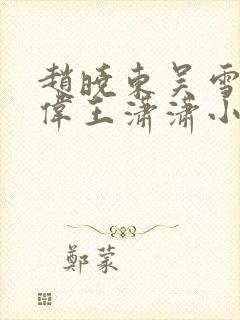 趙曉東吴雪
偉王潇潇小
鄭蒙